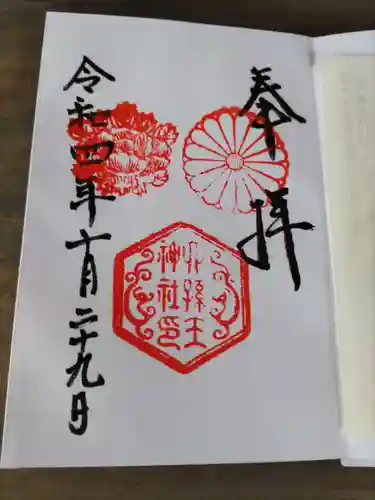 奉拝
六孫王
神社印
令和四年十月二十九日